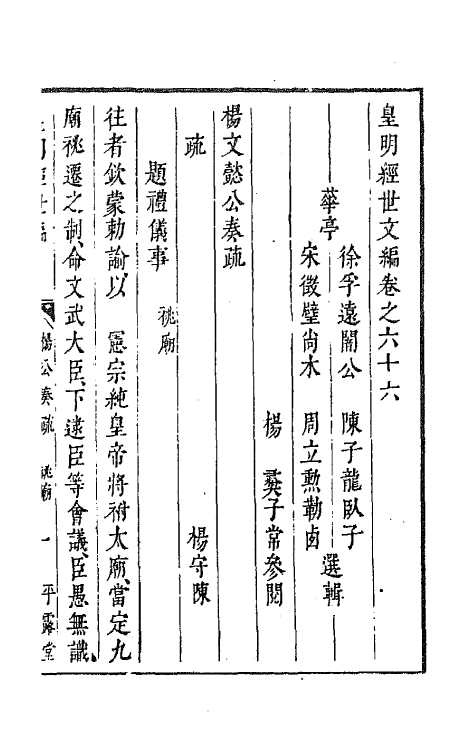 皇明經世文編卷之六十六
華亭
徐孚遠闇公　陳子龍臥子
宋徵璧尚木　周立勳勒卣
選輯
楊　彝子常參閱
楊文懿公奏疏
疏　楊守陳
題禮儀事　祧廟
往者欽蒙勅諭以　憲宗純皇帝將祔太廟當定九
廟祧遷之制命文武大臣下逮臣等會議臣愚無識
楊公奏疏　祧廟　一　平露堂